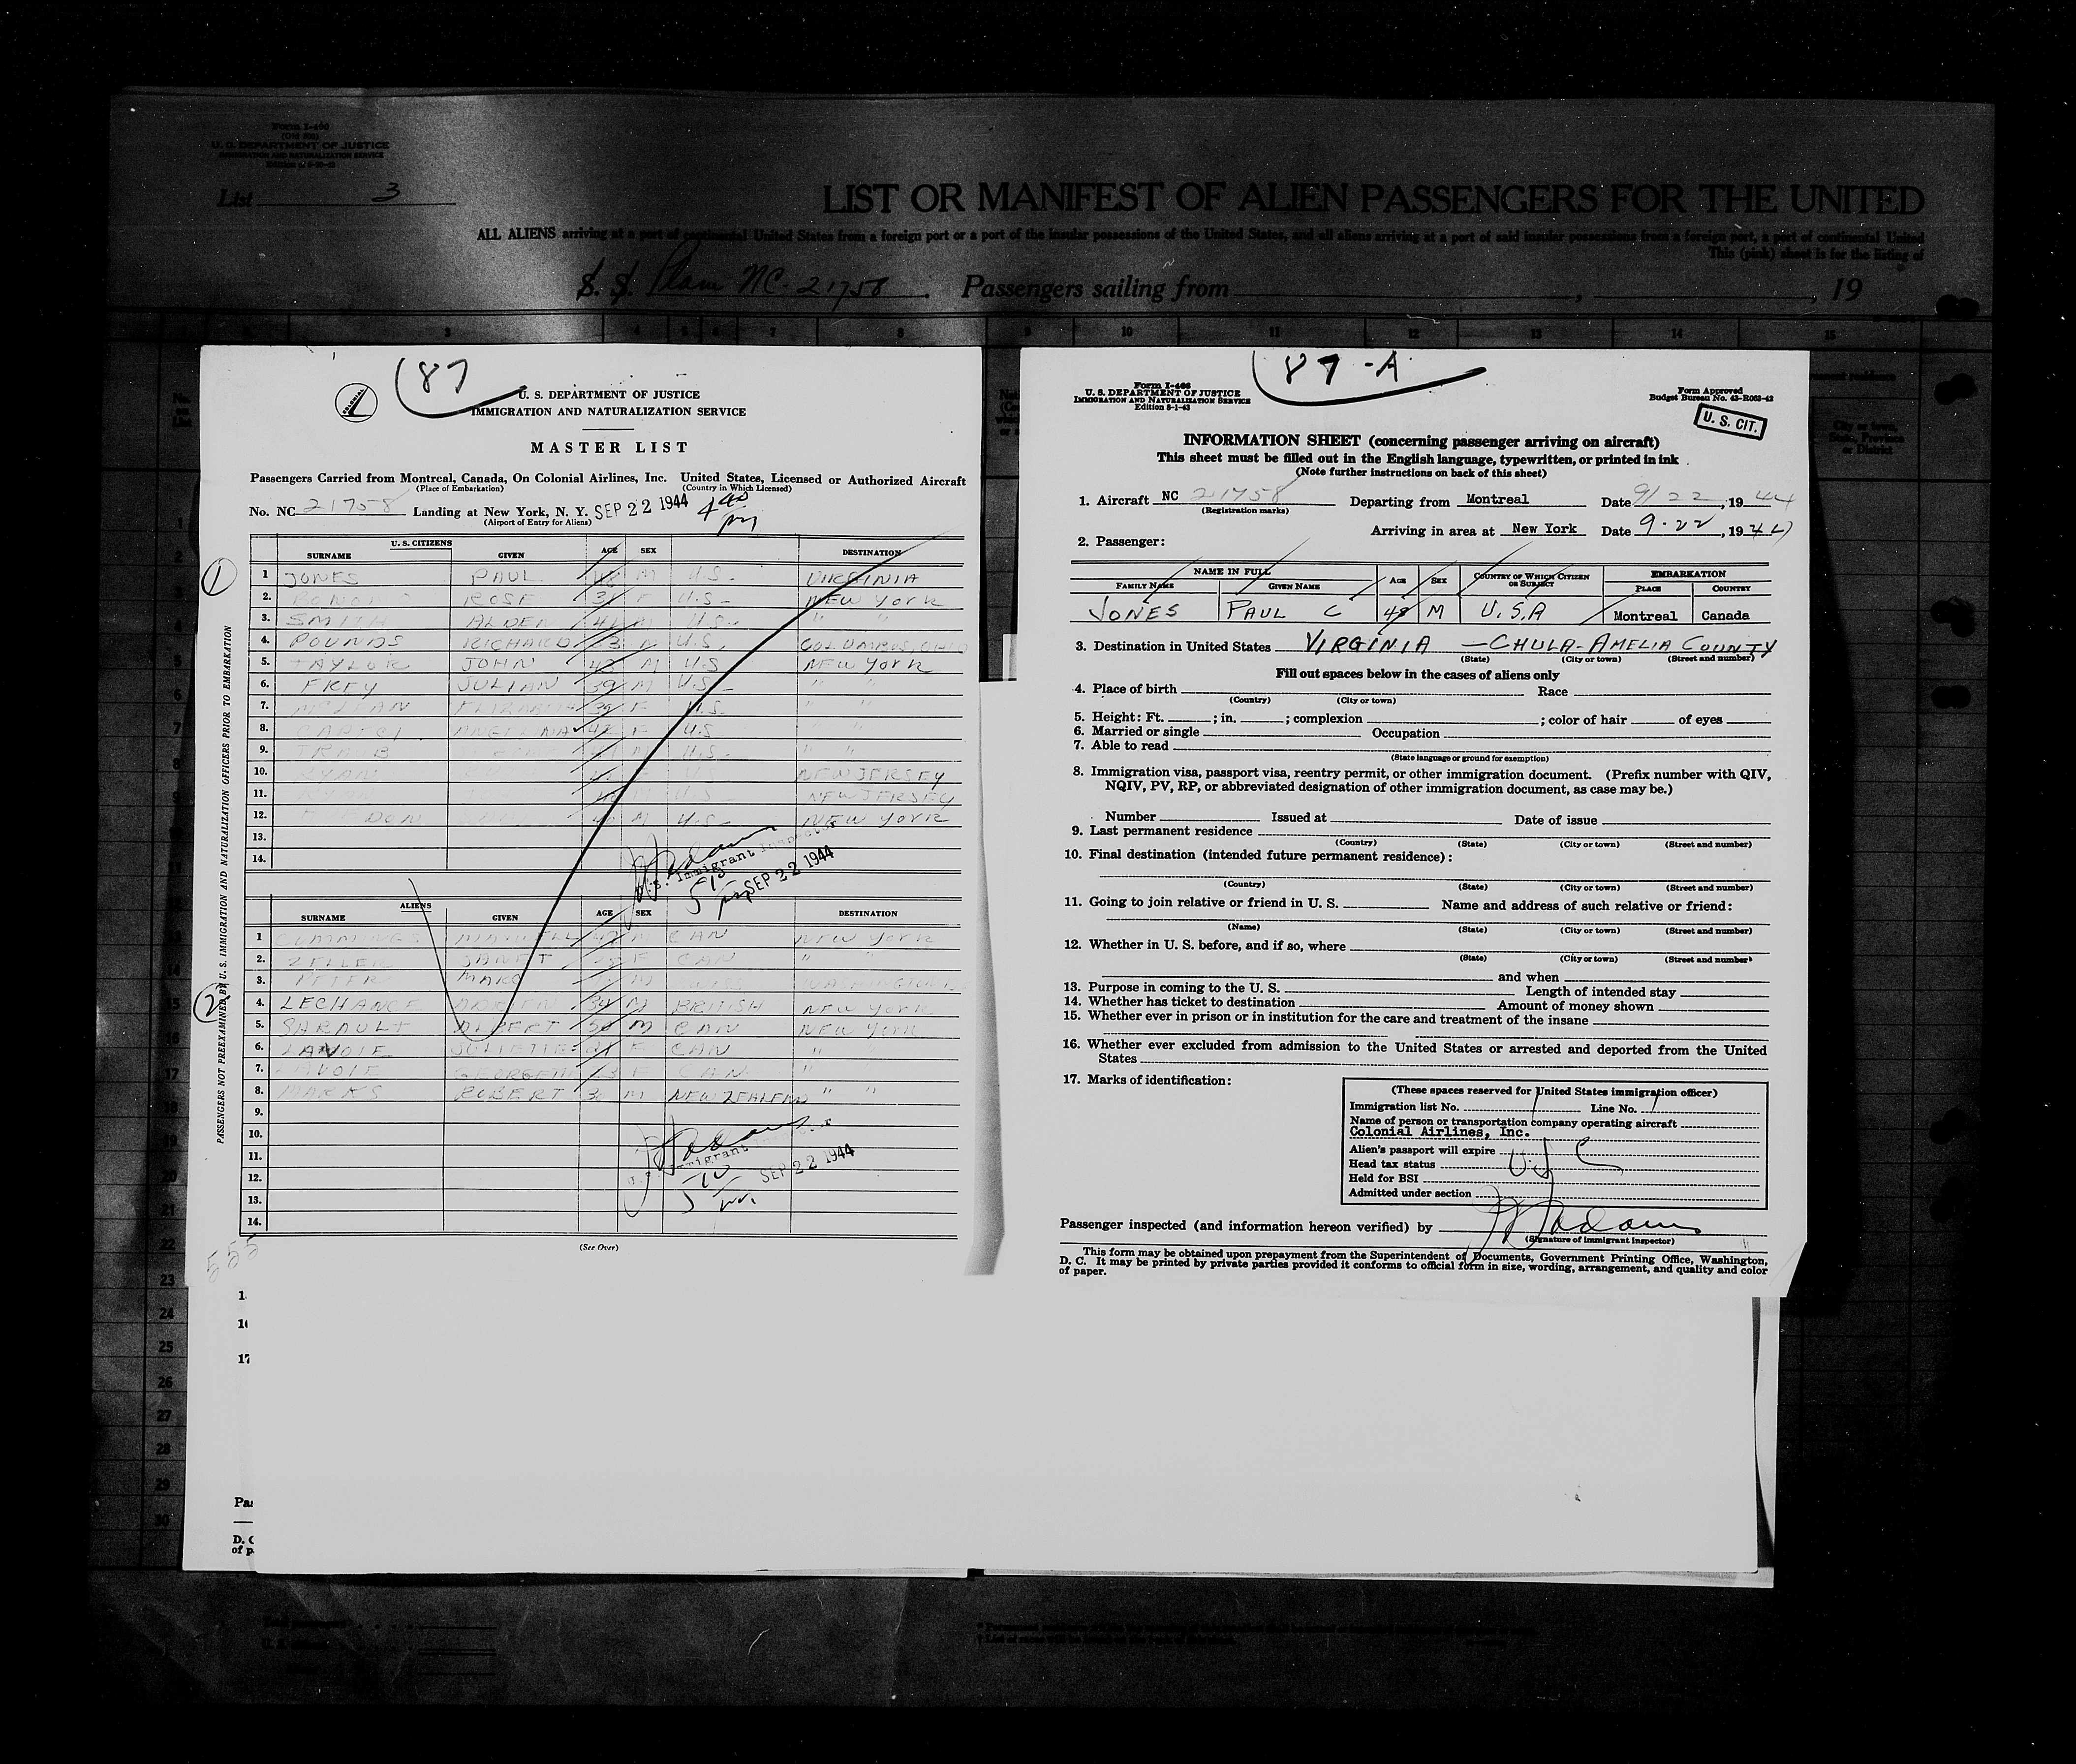 Form I-400
(Old 500)
U. S. DEPARTMENT OF JUSTICE
IMMIGRATION AND NATURALIZATION SERVICE
List 3
LIST OR MANIFEST OF ALIEN PASSENGERS FOR THE UNITED
ALL ALIENS arriving at a port of continental United States from a foreign port or a port of the insular possessions of the United States, and all aliens arriving at a port of said insular possessions from a foreign port, a port of continental United
This (pink) sheet is for the listing of
S. S. Plane NC-21758 Passengers sailing from , , 19
3 4 5 6 7 8 9 10 11 12 13 14 15
87
COLONIAL
U. S. DEPARTMENT OF JUSTICE
IMMIGRATION AND NATURALIZATION SERVICE
MASTER LIST
Passengers Carried from Montreal, Canada, On Colonial Airlines, Inc. United States, Licensed or Authorized Aircraft
(Place of Embarkation) (Country in Which Licensed)
No. NC 21758 Landing at New York, N. Y. SEP 22 1944 4 40 pm
(Airport of Entry for Aliens)
U. S. CITIZENS
SURNAME GIVEN AGE SEX DESTINATION
1 JONES PAUL 48 M U.S. VIRGINIA
2. ROSE 31 F U.S. NEW YORK
3. SMITH ALDEN 41 M U.S. " "
4. POUNDS RICHARD 3 M U.S. COLUMBUS, OHIO
5. TAYLOR JOHN 43 M U.S NEW YORK
6. FREY JULIAN 39 M U.S. " "
7. McLEAN ELIZABETH 39 F U.S. " "
8. ANGELINA 42 F U.S " "
9. M U.S. " "
10. RYAN NEW JERSEY
11. RYAN U.S NEW JERSEY
12. M U.S. NEW YORK
13.
14.
U.S. Immigrant Inspector
510 pm SEP 22 1944
ALIENS
SURNAME GIVEN AGE SEX DESTINATION
1 CUMMINGS MAXWELL M CAN NEW YORK
2. ZELLER JANET F CAN " "
3. PETER MARC M WASHINGTON
4. LECHANCE ADRIEN 34 M BRITISH NEW YORK
5. SARAULT ALBERT 50 M CAN NEW YORK
6. LAVOIE JULIETTE 41 F CAN "
7. LAVOIE 13 F CAN. "
8. MARKS ROBERT 30 M NEW ZEALEND " "
9.
10.
11.
12.
13.
14.
U.S. Immigrant
510 pm SEP 22 1944
(See Over)
1
2
PASSENGERS NOT PREEXAMINED BY U. S. IMMIGRATION AND NATURALIZATION OFFICERS PRIOR TO EMBARKATION
555
87-A
Form I-466
U. S. DEPARTMENT OF JUSTICE
IMMIGRATION AND NATURALIZATION SERVICE
Edition 8-1-43
Form Approved
Budget Bureau No. 43-R063-42
U. S. CIT.
INFORMATION SHEET (concerning passenger arriving on aircraft)
This sheet must be filled out in the English language, typewritten, or printed in ink
(Note further instructions on back of this sheet)
1. Aircraft NC 21758 Departing from Montreal Date 9/22, 19 44
(Registration marks)
Arriving in area at New York Date 9-22, 19 44
2. Passenger:
NAME IN FULL AGE SEX COUNTRY OF WHICH CITIZEN OR SUBJECT EMBARKATION
FAMILY NAME GIVEN NAME PLACE COUNTRY
JONES PAUL C 48 M U.S.A Montreal Canada
3. Destination in United States VIRGINIA — CHULA-AMELIA COUNTY
(State) (City or town) (Street and number)
Fill out spaces below in the cases of aliens only
4. Place of birth Race
(Country) (City or town)
5. Height: Ft. ; in. ; complexion ; color of hair of eyes
6. Married or single Occupation
7. Able to read
(State language or ground for exemption)
8. Immigration visa, passport visa, reentry permit, or other immigration document. (Prefix number with QIV,
NQIV, PV, RP, or abbreviated designation of other immigration document, as case may be.)
Number Issued at Date of issue
9. Last permanent residence
(Country) (State) (City or town) (Street and number)
10. Final destination (intended future permanent residence):
(Country) (State) (City or town) (Street and number)
11. Going to join relative or friend in U. S. Name and address of such relative or friend:
(Name) (State) (City or town) (Street and number)
12. Whether in U. S. before, and if so, where
(State) (City or town) (Street and number)
and when
13. Purpose in coming to the U. S. Length of intended stay
14. Whether has ticket to destination Amount of money shown
15. Whether ever in prison or in institution for the care and treatment of the insane
16. Whether ever excluded from admission to the United States or arrested and deported from the United
States
17. Marks of identification:
(These spaces reserved for United States immigration officer)
Immigration list No. 1 Line No. 1
Name of person or transportation company operating aircraft
Colonial Airlines, Inc.
Alien's passport will expire
Head tax status
USC
Held for BSI
Admitted under section
Passenger inspected (and information hereon verified) by
(Signature of immigrant inspector)
This form may be obtained upon prepayment from the Superintendent of Documents, Government Printing Office, Washington,
D. C. It may be printed by private parties provided it conforms to official form in size, wording, arrangement, and quality and color
of paper.
22
23
24
25
26
27
28
29
30